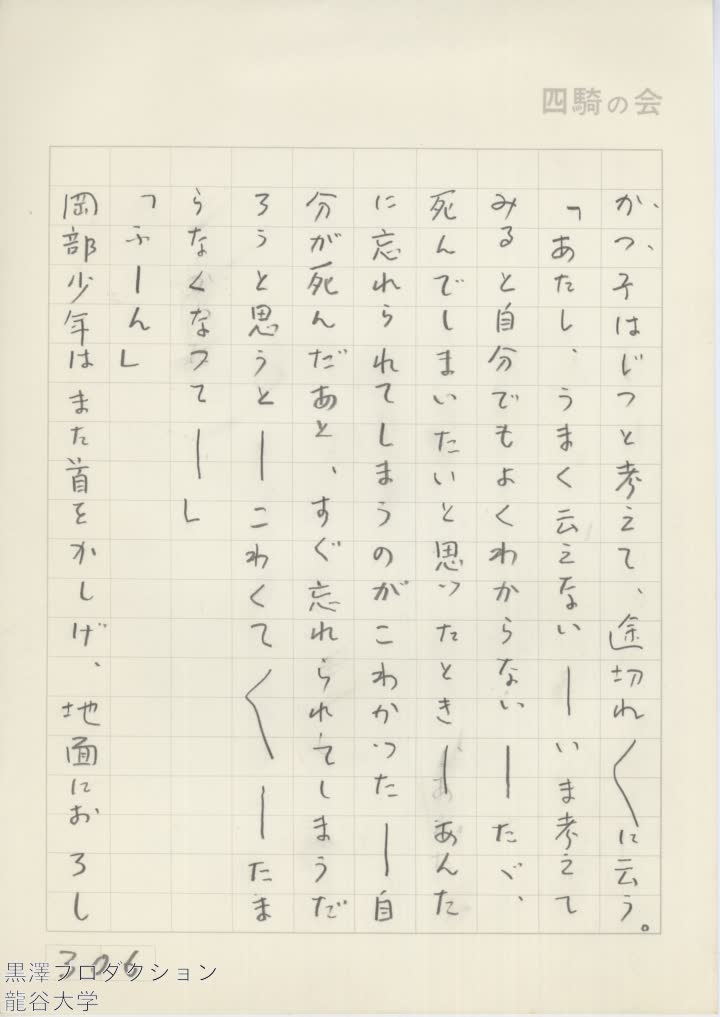 四騎の会
かつ子はじつと考えて、途切れ〱に云う。
「あたし、うまく云えない――いま考えて
みると自分でもよくわからない――たゞ、
死んでしまいたいと思つたとき――あんた
に忘れられてしまうのがこわかつた――自
分が死んだあと、すぐ忘れられてしまうだ
ろうと思うと――こわくて〱――たま
らなくなつて――」
「ふーん」
岡部少年はまた首をかしげ、地面におろし
306
黒澤プロダクション
龍谷大学